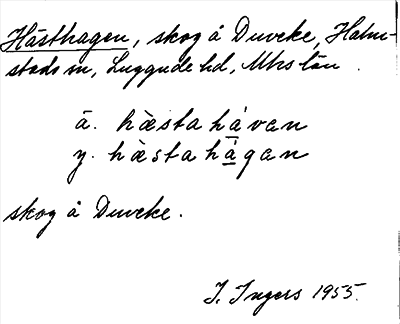 Hästhagen, skog å Duveke, Halm-
stads sn, Luggude hd, Mhs län.
ä. hæ̀stahávan
y. hæ̀stahágan
skog å Duveke.
I. Ingers 1955.